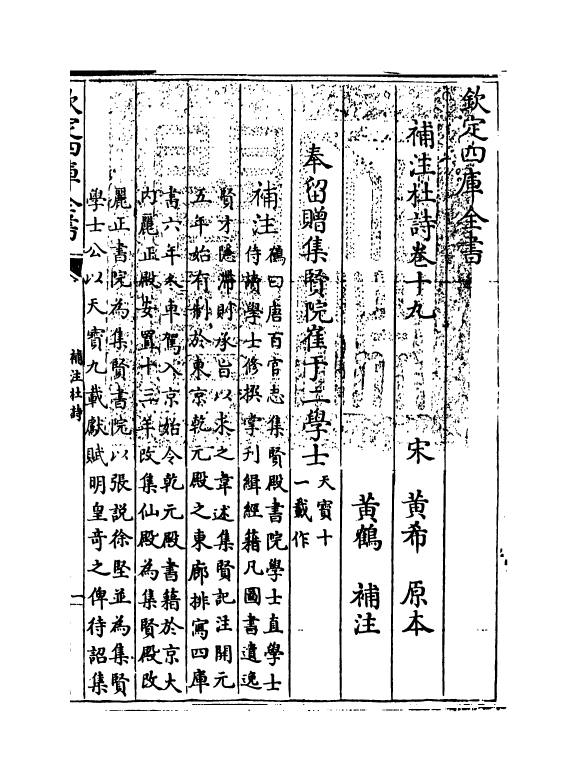 欽定四庫全書
補注杜詩卷十九
宋 黃希 原本
黃鶴 補注
奉留贈集賢院崔于二學士天寶十一載作
補注鶴曰唐百官志集賢殿書院學士直學士
侍讀學士修撰掌刊緝經籍凡圖書遺逸
賢才隱滯則承旨以求之韋述集賢記注開元
五年始有制於東京乾元殿之東廊排寫四庫
書六年冬車駕入京始令乾元殿書籍於京大
内麗正殿安置十三年改集仙殿為集賢殿改
麗正書院為集賢書院以張説徐堅並為集賢
學士公以天寶九載獻賦明皇奇之俾待詔集
欽定四庫全書
補注杜詩
一